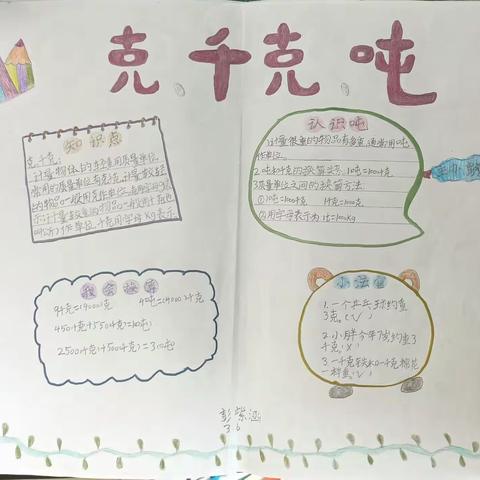 克、千克、吨
知识点
克、千克:
计量物体的轻重用质量单位,
常用的质量单位有克,计量较轻
的物品一般用克作单位,
示计量较重的物品一般用千克也
叫公斤作单位,千克用字母kg表示.
认识吨
计量很重的物品有多重,通常用吨
作单位.
2.吨和千克的换算关系:1吨=1000千克
3质量单位之间的换算方法:
①1吨=1000千克 1千克=1000克
②用字母表示为1t=1000kg
我会换算
9千克=(9000)克 4吨=(4000)千克
450千克+(550千克)=1(吨)
2500千克+(500千克)=3(吨)
小法官
1.一个乒乓球约重
3克。(√)
2.小胖今年7岁约重3
千克(×)
3.一千克铁和一千克棉花
一样重(√)
彭紫涵
3.6